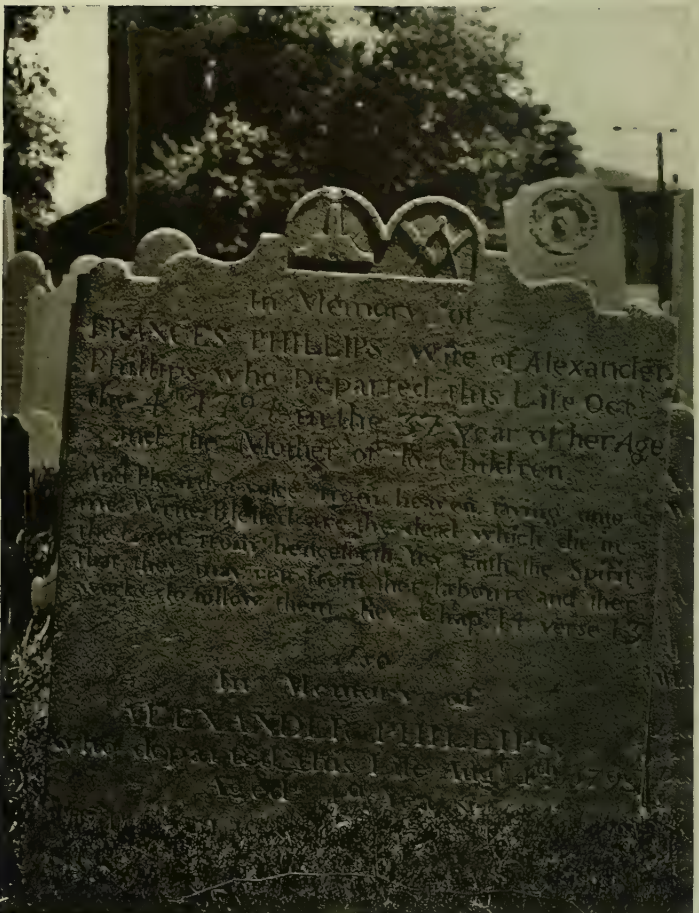 In Memory of
FRANCES PHILLIPS Wife of Alexander
Phillips who Departed this Life Oct.
the 4th in the 37 Year of her Age
and the Mother of Children
And I heard a voice from heaven saying unto
me Write Blessed are the dead which die in
the Lord from henceforth Yea saith the Spirit
that they may rest from their labours and their
works do follow them Rev. Chap. 14 verse 13
Also
In Memory of
ALEXANDER PHILLIPS
who departed this Life Augt
Aged